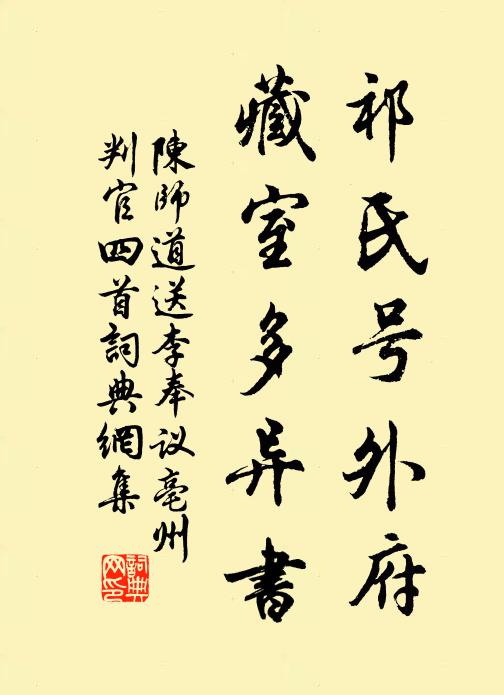 祁氏号外府
藏室多异书
陳師道送李奉议亳州
判官四首詞典網集
詞典
网印